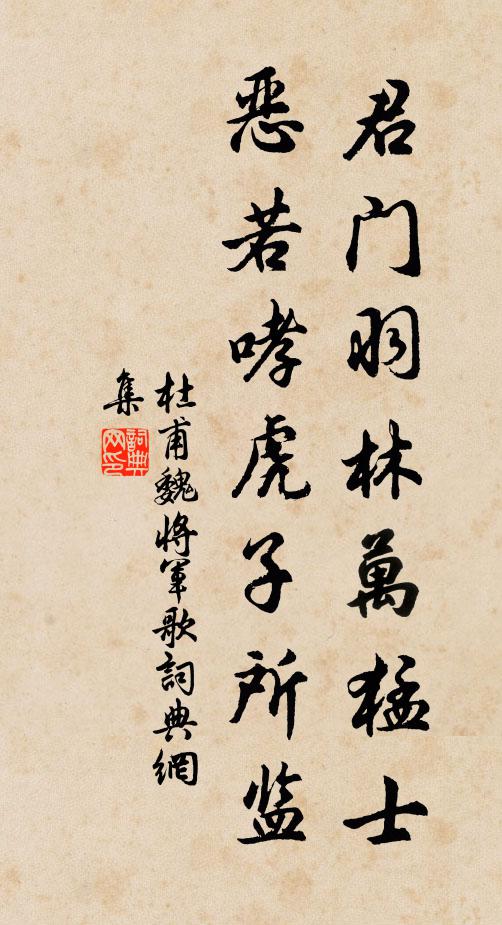 君门羽林萬猛士
恶若哮虎子所监
杜甫魏將軍歌詞典網
集
詞典网印